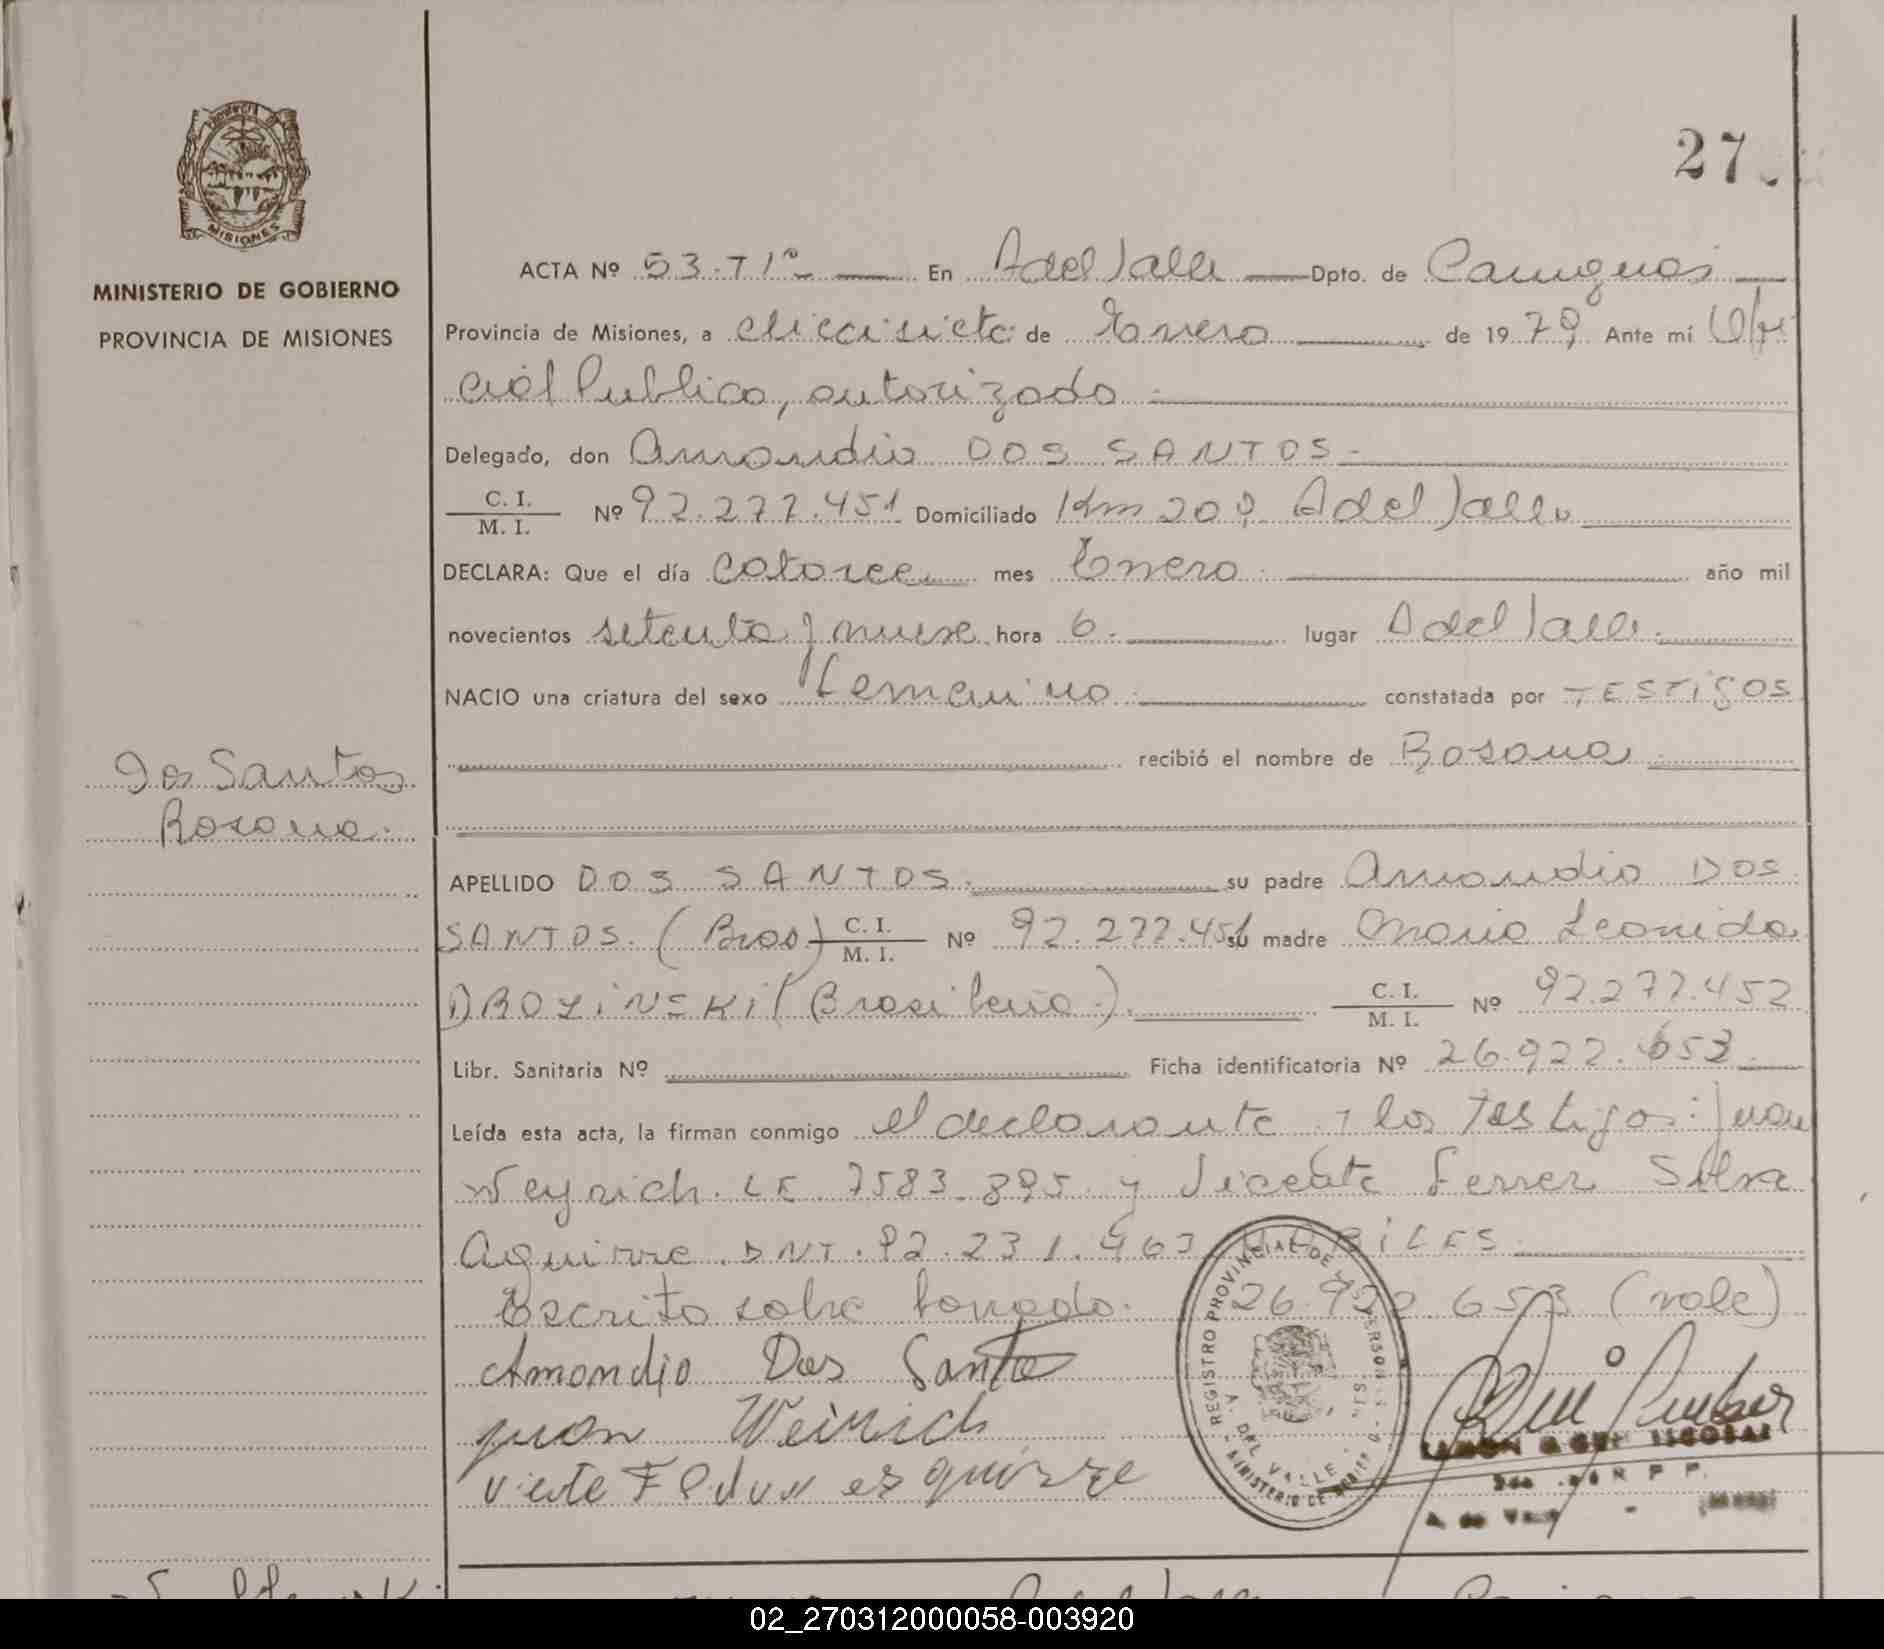 27
MISIONES
MINISTERIO DE GOBIERNO
PROVINCIA DE MISIONES
ACTA Nº 53. T1º En A del Valle Dpto. de Cainguas
Provincia de Misiones, a diecisiete de Enero de 1979 Ante mí Ofi
cial Publico, autorizado
Delegado, don Amandio DOS SANTOS.
C. I.
M. I. Nº 92.277.451 Domiciliado Km 20 A del Valle
DECLARA: Que el día catorce mes Enero año mil
novecientos setenta y nueve hora 6. lugar A del Valle.
NACIO una criatura del sexo femenino constatada por TESTIGOS
recibió el nombre de Rosana
Dos Santos
Rosana.
APELLIDO DOS SANTOS. su padre Amandio DOS
SANTOS. (Bras) C. I. M. I. Nº 92.277.451 su madre Maria Leonida
DROZINSKI (Brasileña.). C. I. M. I. Nº 92.277.452
Libr. Sanitaria Nº Ficha identificatoria Nº 26.922.653
Leída esta acta, la firman conmigo el declarante y los testigos: Juan
Weyrich. LE. 7583.895 y Vicente Ferrer Silva
Aguirre. DNI. 92.231.463 HABILES.
Escrito sobre borrado. 26.922 653 (vale)
Amondio Dos Santo
juan Weirich
REGISTRO PROVINCIAL DE LAS PERSONAS
A. DEL VALLE
MINISTERIO DE GOBIERNO
RAMON ESCOBAR
A. del Valle
02_270312000058-003920